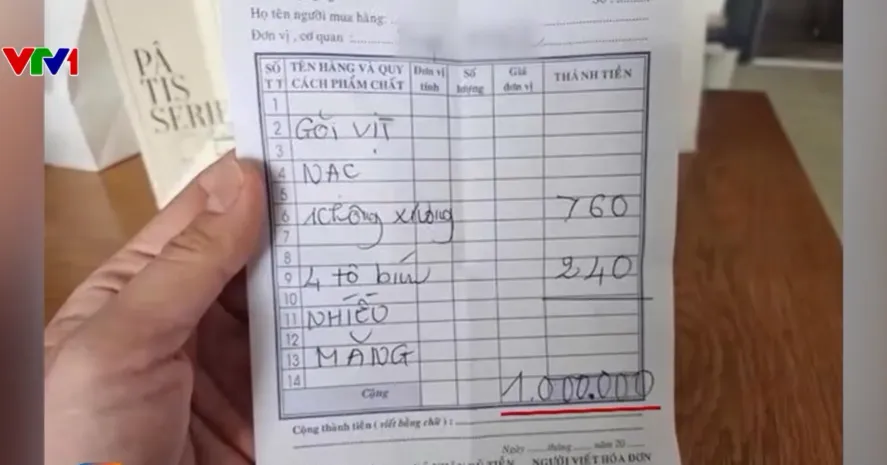 VTV1
PÂ
TIS
SERIE
Họ tên người mua hàng:
Đơn vị, cơ quan :
SỐ TT TÊN HÀNG VÀ QUY CÁCH PHẨM CHẤT Đơn vị tính Số lượng Giá đơn vị THÀNH TIỀN
1
2 GỎI VỊT
3
4 NẠC
5
6 không xương 760
7
8
9 4 tô bún 240
10
11 NHIỀU
12
13 MĂNG
14
Cộng 1.000.000
Cộng thành tiền ( viết bằng chữ ) :
Ngày tháng năm 20
NGƯỜI VIẾT HÓA ĐƠN